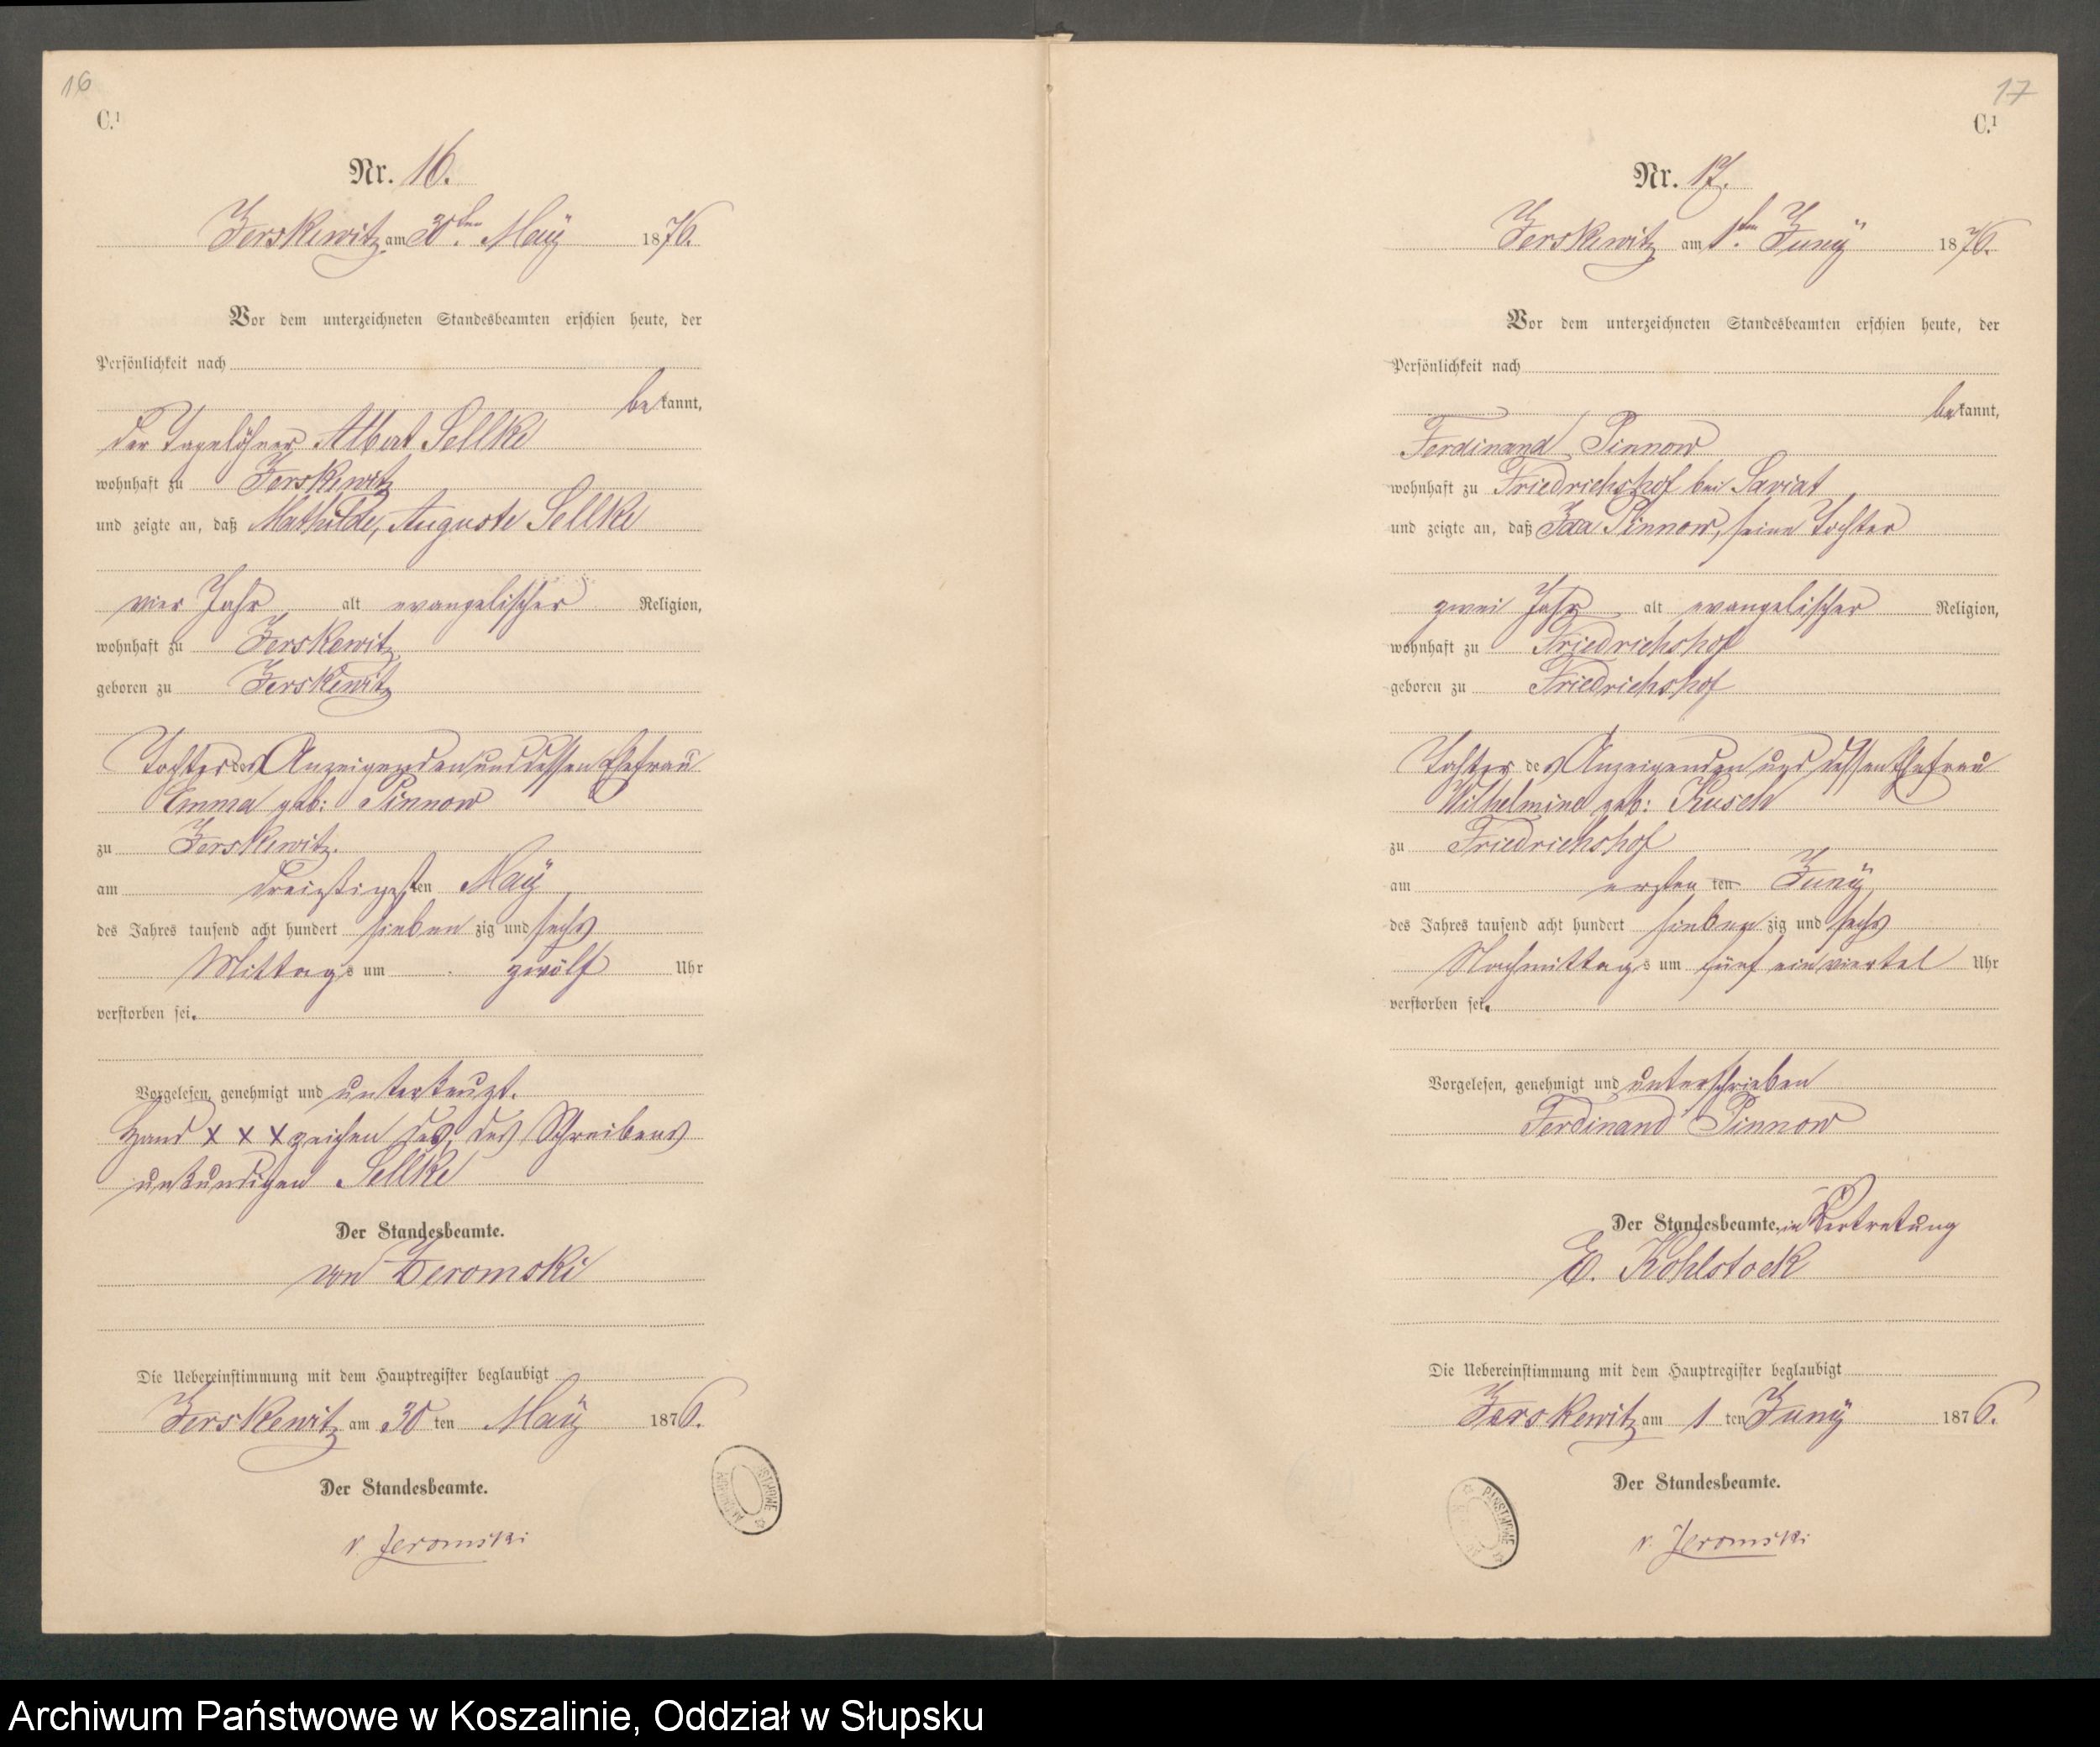 16
C.¹
Nr. 16.
Jerskewitz am 30ten Maÿ 1876.
Vor dem unterzeichneten Standesbeamten erschien heute, der
Persönlichkeit nach
bekannt,
der Tagelöhner Albert Sellke
wohnhaft zu Jerskewitz
und zeigte an, daß Mathilde, Auguste Sellke
vier Jahr alt evangelischer Religion,
wohnhaft zu Jerskewitz
geboren zu Jerskewitz
Tochter des Anzeigenden und dessen Ehefrau
Emma geb: Pinnow
zu Jerskewitz.
am dreißigsten Maÿ
des Jahres tausend acht hundert siebenzig und sechs
Mittags um zwölf Uhr
verstorben sei.
Vorgelesen, genehmigt und unterkreuzt.
Hand x x x zeichen des, des Schreibens
unkundigen Sellke
Der Standesbeamte.
von Jeromski
Die Uebereinstimmung mit dem Hauptregister beglaubigt
Jerskewitz am 30 ten Maÿ 1876.
Der Standesbeamte.
v. Jeromski
17
C.¹
Nr. 17.
Jerskewitz am 1ten Junÿ 1876.
Vor dem unterzeichneten Standesbeamten erschien heute, der
Persönlichkeit nach
bekannt,
Ferdinand Pinnow
wohnhaft zu Friedrichshof bei Saviat
und zeigte an, daß Ida Pinnow, seine Tochter
zwei Jahr alt evangelischer Religion,
wohnhaft zu Friedrichshof
geboren zu Friedrichshof
Tochter des Anzeigenden und dessen Ehefrau
Wilhelmine geb: Kusch
zu Friedrichshof
am ersten ten Junÿ
des Jahres tausend acht hundert siebenzig und sechs
Nachmittags um fünf ein viertel Uhr
verstorben sei.
Vorgelesen, genehmigt und unterschrieben
Ferdinand Pinnow
Der Standesbeamte. in Vertretung
E. Kohlstock
Die Uebereinstimmung mit dem Hauptregister beglaubigt
Jerskewitz am 1 ten Junÿ 1876.
Der Standesbeamte.
v. Jeromski
Archiwum Państwowe w Koszalinie, Oddział w Słupsku